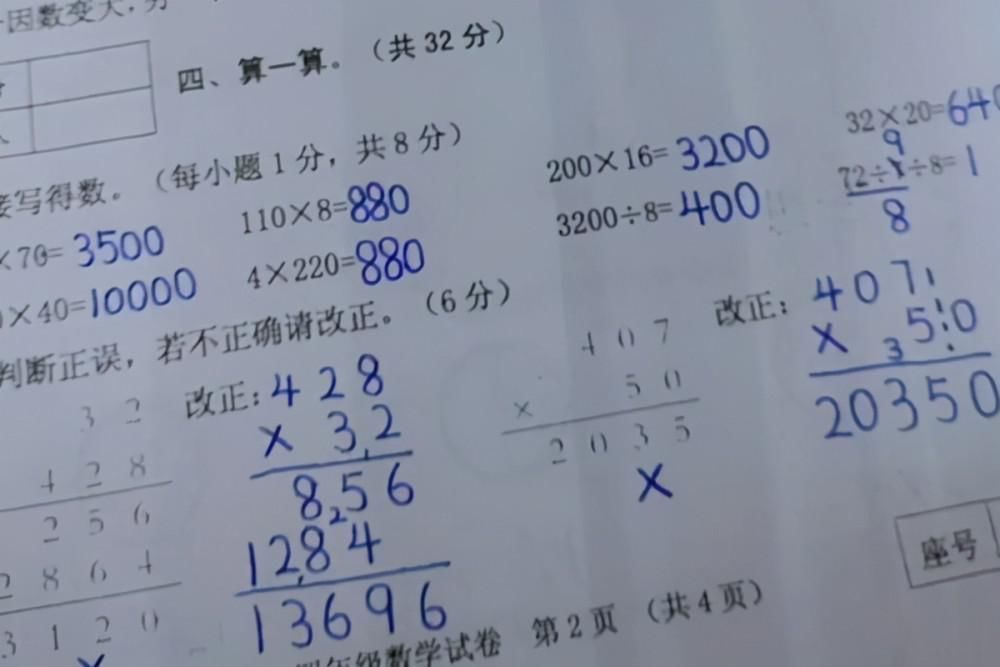 因数变大,
四、算一算。(共 32 分)
接写得数。(每小题 1 分,共 8 分)
×70= 3500 110×8=880 200×16= 3200 32×20=640
×40=10000 4×220=880 3200÷8=400 72÷ ÷8= 1
9
8
判断正误,若不正确请改正。(6 分)
3 2 改正: 4 2 8 4 0 7 改正: 4 0 7
4 2 8 × 3 2 × 5 0 × 3 5 0
2 5 6 8 5 6 2 0 3 5 2 0 3 5 0
2 8 6 4 1 2 8 4 ×
3 1 2 0 1 3 6 9 6
座号
四年级数学试卷 第 2 页 (共 4 页)